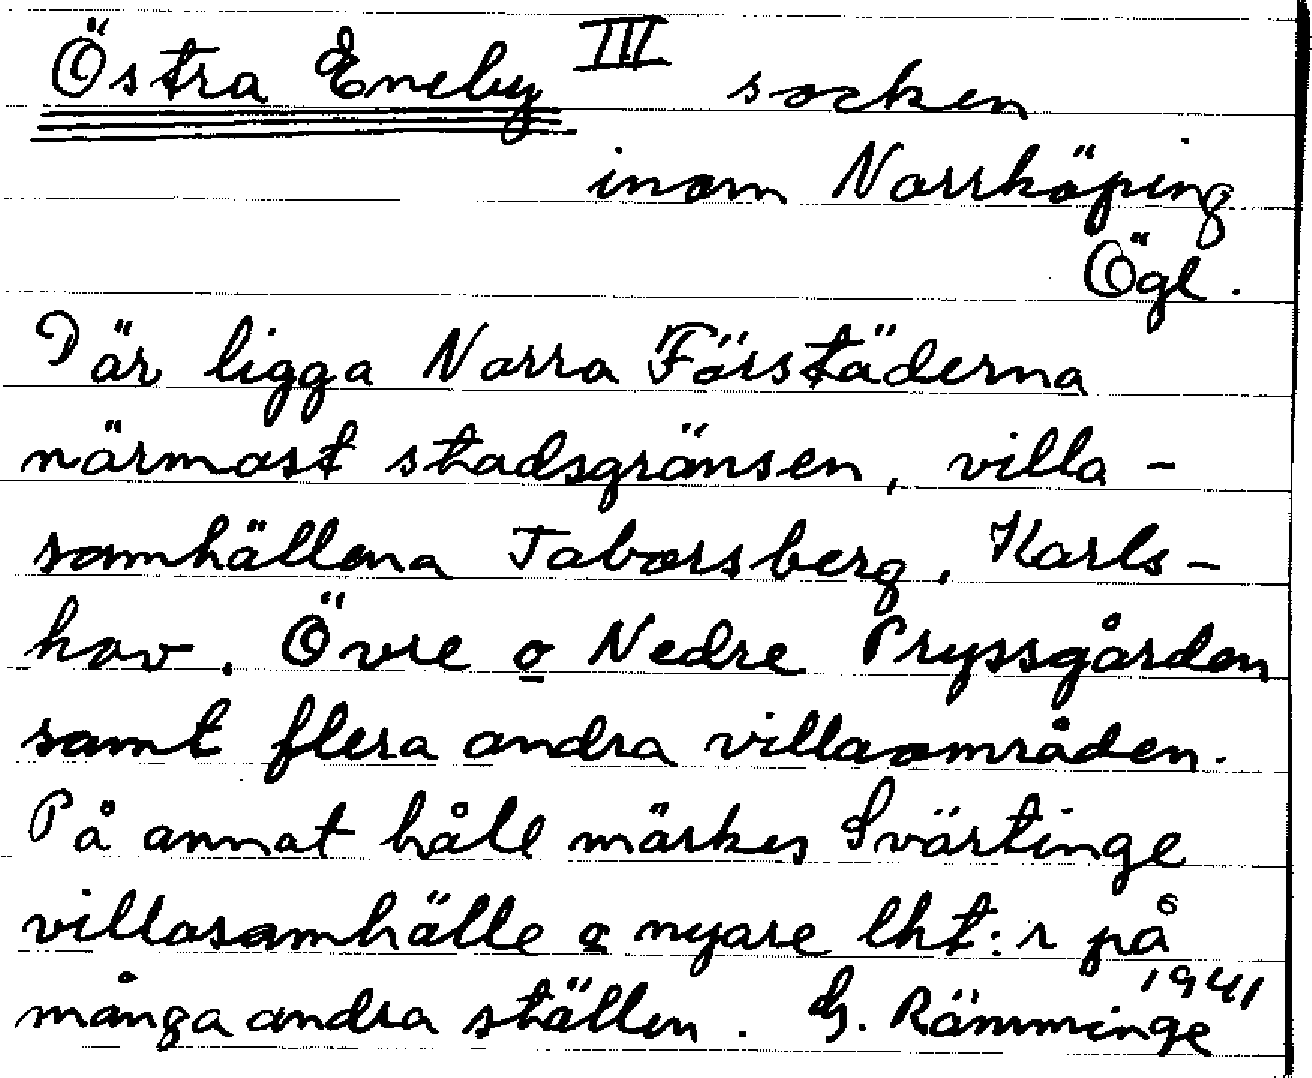 Östra Eneby III socken
inom Norrköping
Ögl.
Där ligga Norra Förstäderna
närmast stadsgränsen, villa-
samhällena Taborsberg, Karls-
hov, Övre o Nedre Pryssgården
samt flera andra villaområden.
På annat håll märkes Svärtinge
villasamhälle o nyare lht:r på
många andra ställen. G. Rämminge 1941